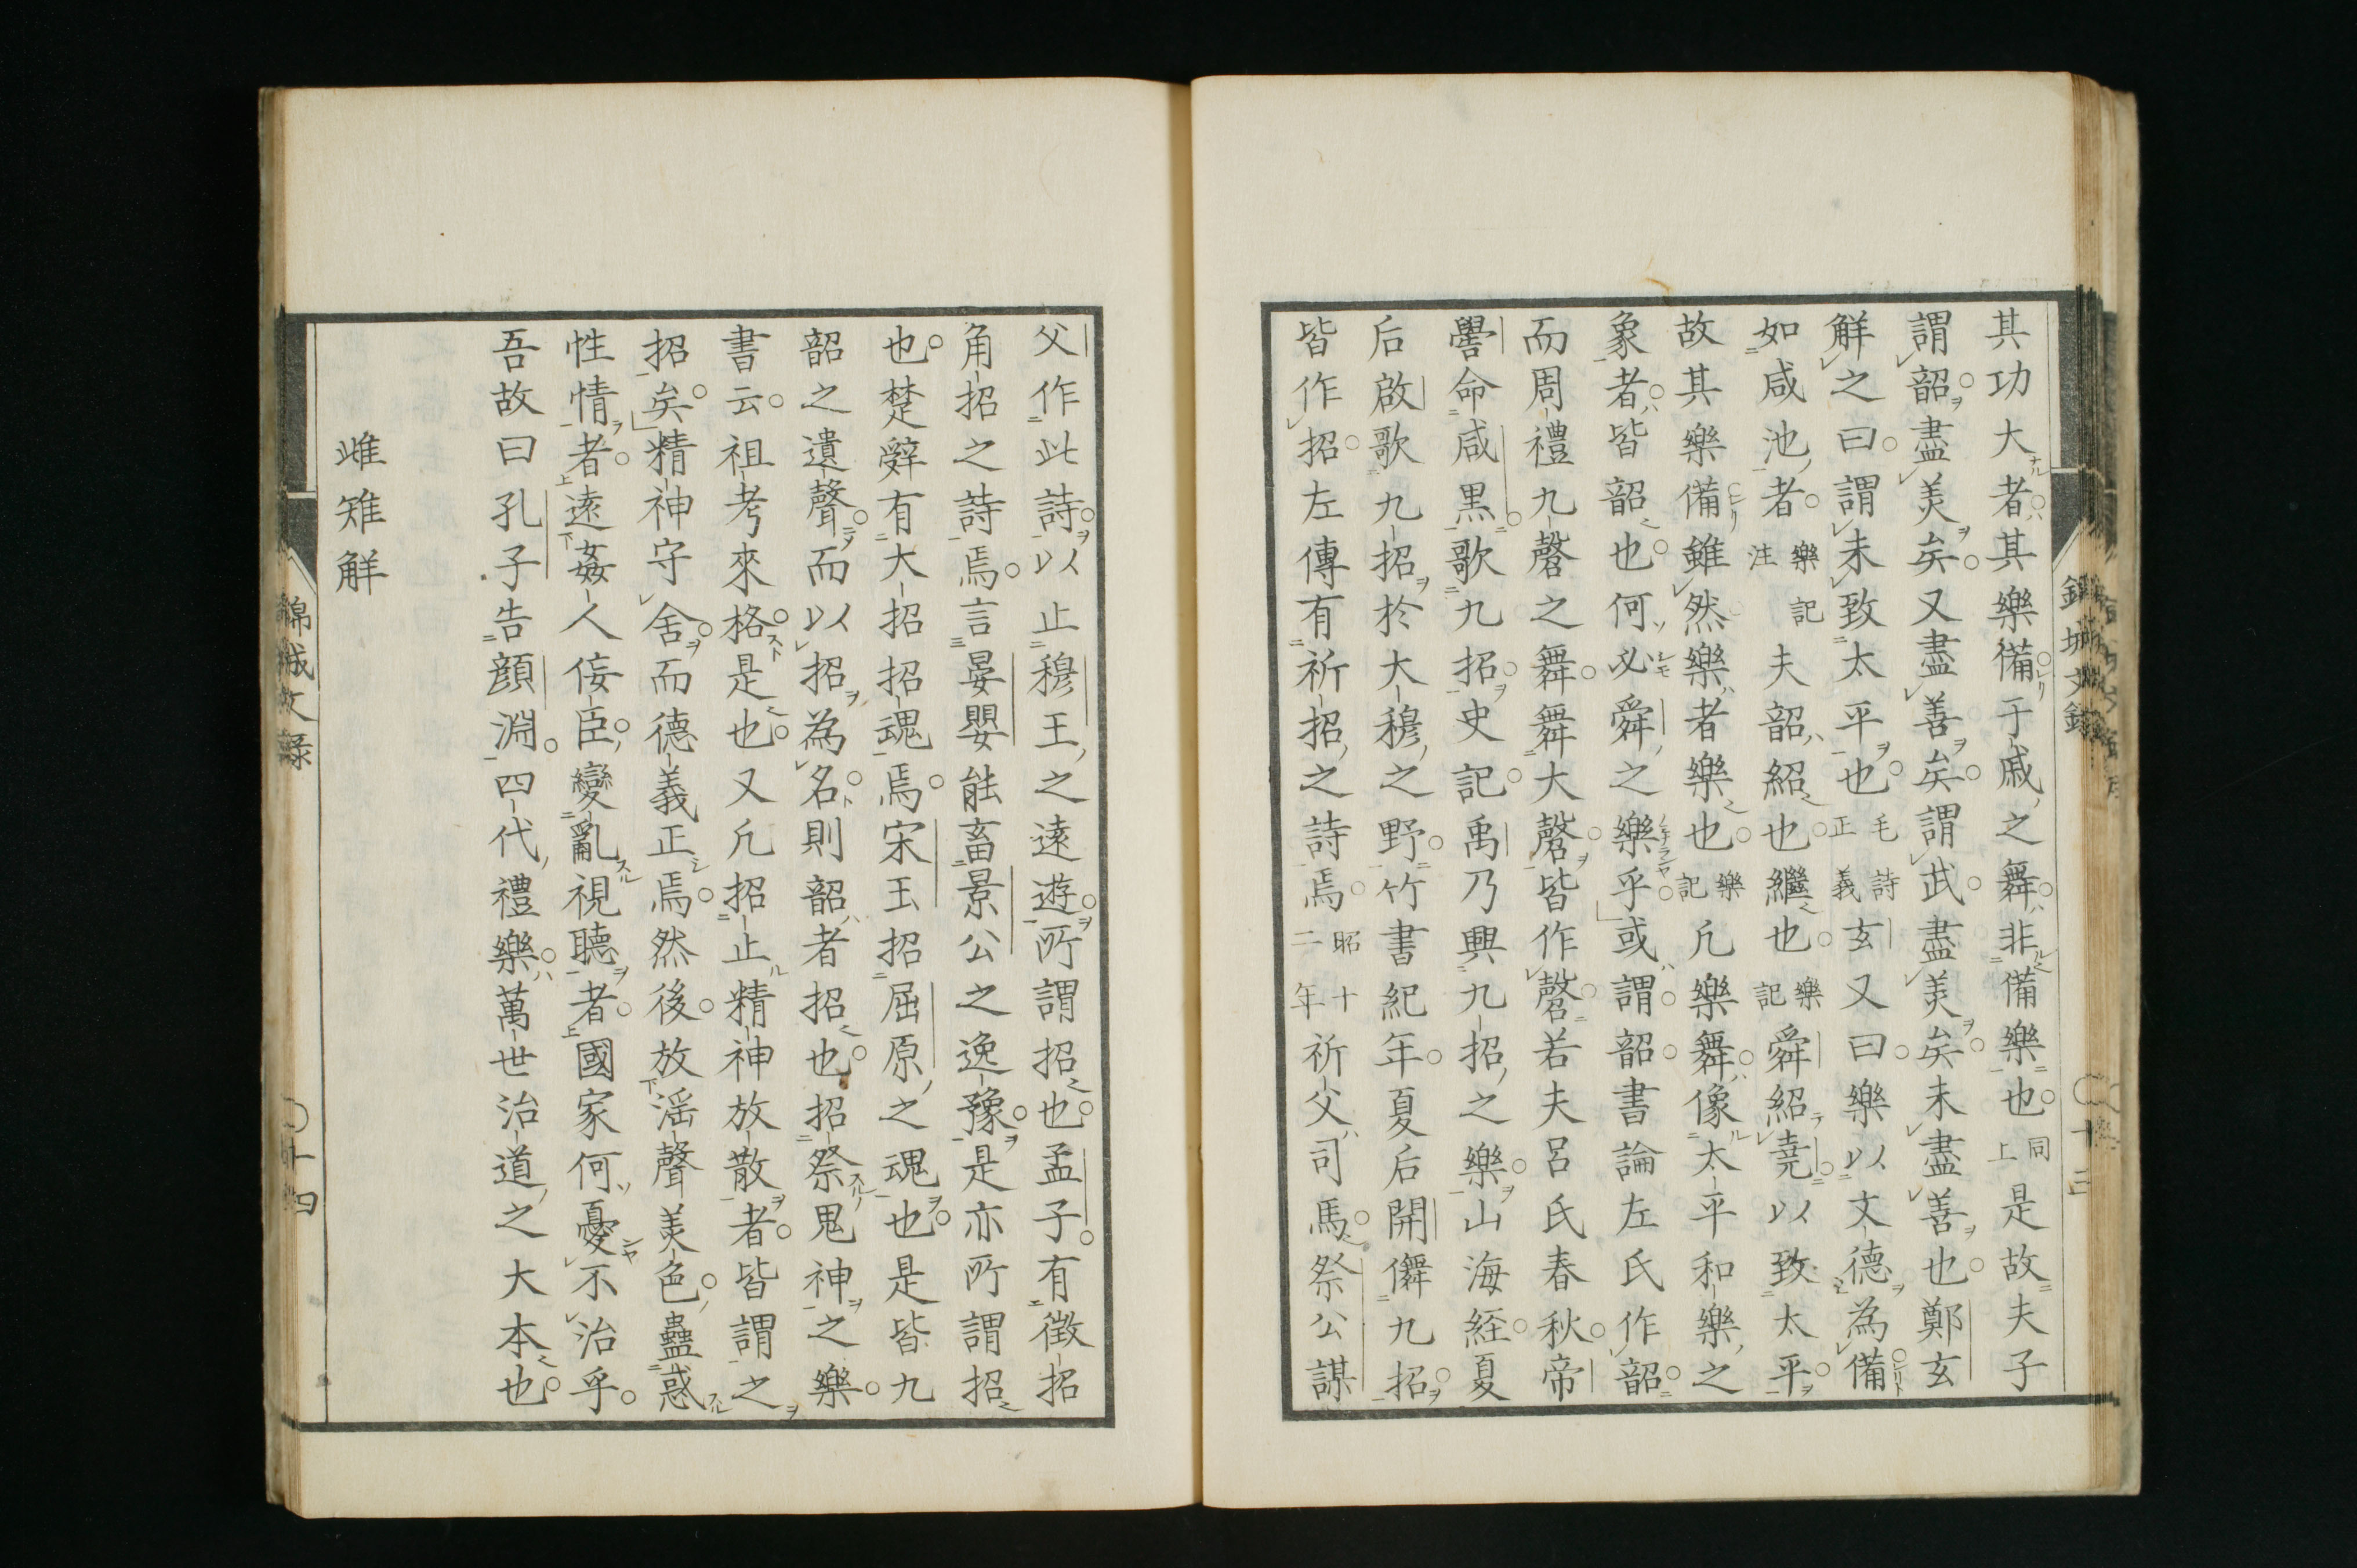 其功大者其樂備于戚之舞非備樂也同上是故夫子
謂韶盡美矣又盡善矣謂武盡美矣未盡善也鄭玄
解之曰謂未致太平也毛詩正義玄又曰樂以文德為備
如咸池者樂記注夫韶紹也繼也樂記舜紹堯以致太平
故其樂備雖然樂者樂也樂記凢樂舞像太平和樂之
象者皆韶也何必舜之樂乎或謂韶書論左氏作韶
而周禮九磬之舞舞大磬皆作磬若夫呂氏春秋帝
嚳命咸黑歌九招史記禹乃興九招之樂山海経夏
后啟歌九招於大穆之野竹書紀年夏后開儛九招
皆作招左傳有祈招之詩焉昭十二年祈父司馬祭公謀
父作此詩以止穆王之遠遊所謂招也孟子有徴招
角招之詩焉言晏嬰能畜景公之逸豫是亦所謂招
也楚辭有大招招魂焉宋玉招屈原之魂也是皆九
韶之遺聲而以招為名則韶者招也招祭鬼神之樂
書云祖考來格是也又凢招止精神放散者皆謂之
招矣精神守舍而德義正焉然後放滛聲美色蠱惑
性情者遠姦人侫臣變亂視聽者國家何憂不治乎
吾故曰孔子告顔淵四代禮樂萬世治道之大本也
雌雉解
錦城文録
十四
錦城文録
十三